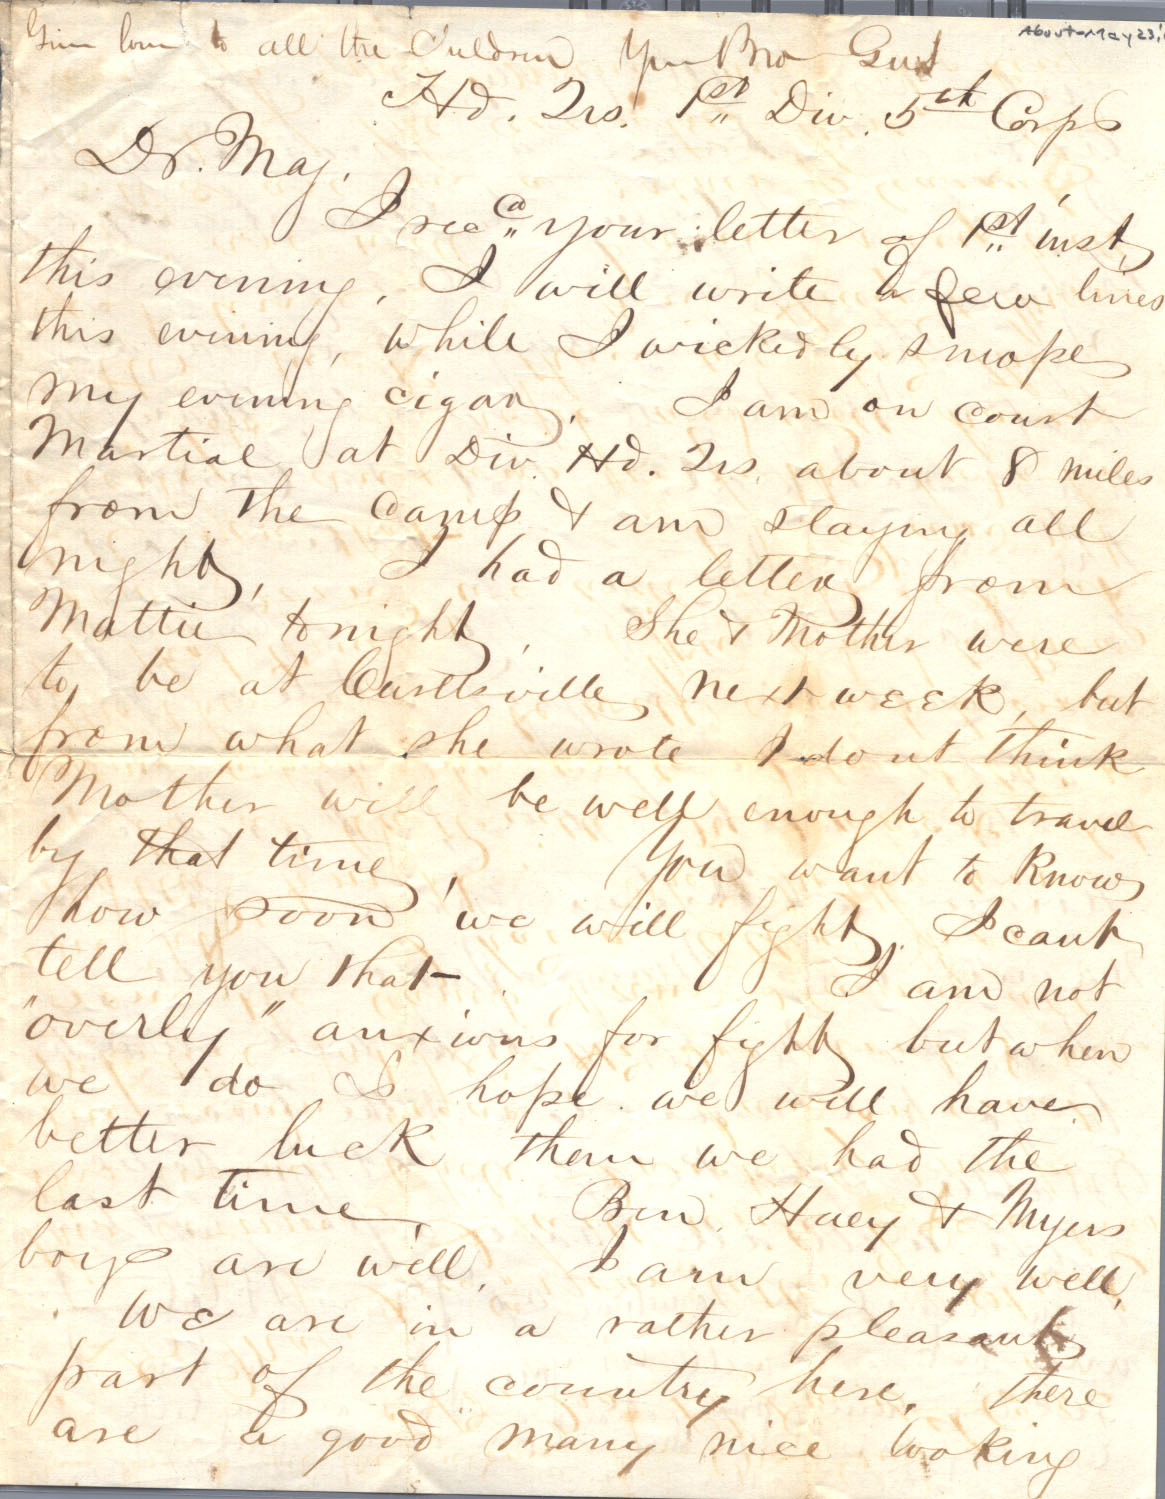 Give love to all the Children Your Bro Gust
About May 23,
Hd. Qrs. 1st Div. 5th Corps
Dr. Mag.
I recd your letter of 1st inst,
this evening, I will write a few lines
this evening, while I wickedly smoke
my evening cigar. I am on court
Martial at Div. Hd. Qrs. about 8 miles
from the camp & am staying all
night, I had a letter from
Mattie tonight, She & Mother were
to be at Curllsville next week, but
from what she wrote I dont think
Mother will be well enough to travel
by that time, You want to know
how soon we will fight, I cant
tell you that I am not
"overly" anxious for fight but when
we do I hope we will have
better luck then we had the
last time, Ben, Huey & Myers
boys are well, I am very well,
We are in a rather pleasant
part of the country here, there
are a good many nice looking